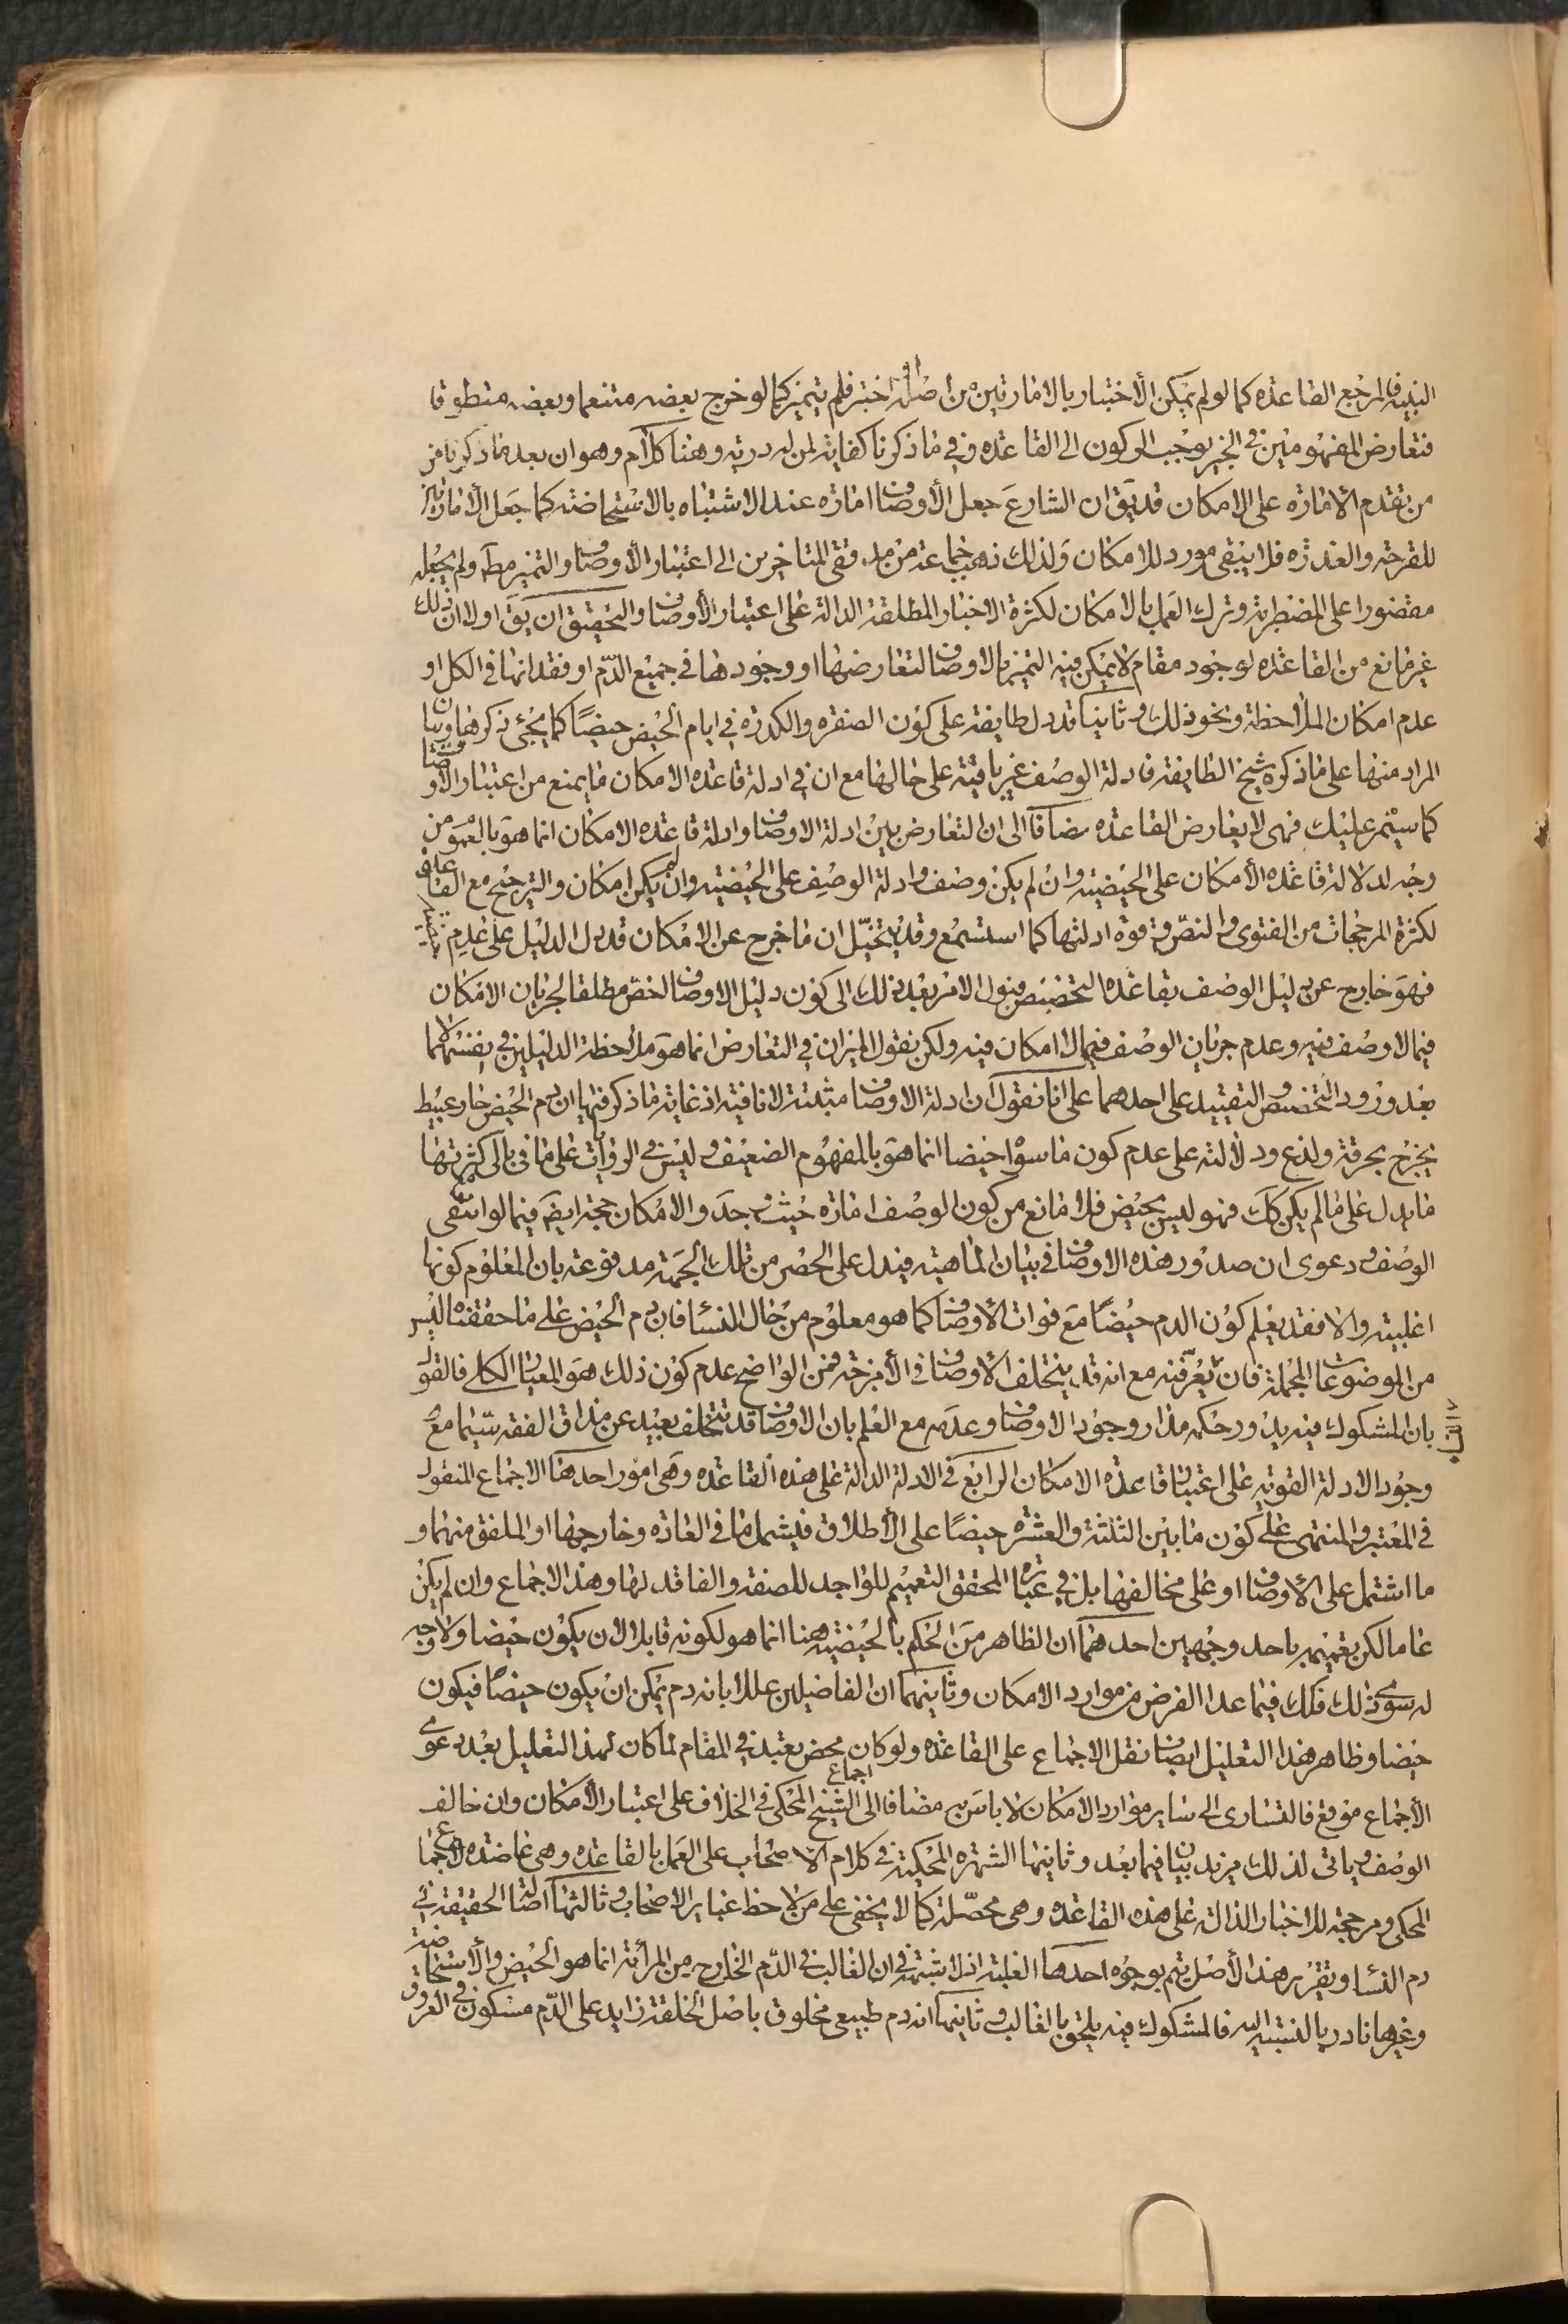 البينه فالمرجع القاعده كما لو لم يمكن الاختبار بالامارتين من اصله او اختبر فلم يتميز كما لو خرج بعضه متنعما وبعضه متطوقا
فتعارض المفهومين في الخبر يوجب الركون الى القاعده وفي ما ذكرنا كفاية لمن له دربة وهنا كلام وهو ان بعد ما ذكرنا من
من تقدم الامارة على الامكان قد يق ان الشارع جعل الاوصاف امارة عند الاشتباه بالاستحاضة كما جعل الامارتين
للقرحة والعذرة فلا يبقى مورد للامكان ولذلك ذهب جماعة من مدققى المتاخرين الى اعتبار الاوصاف والتميز مط ولم يجعله
مقصورا على المضطربة وترك العمل بالامكان لكثرة الاخبار المطلقة الدالة على اعتبار الاوصاف والتحقيق ان يق اولا ان ذلك
غير مانع من القاعده لوجود مقام لا يمكن فيه التميز بالاوصاف لتعارضها او وجودها في جميع الدم او فقدانها في الكل او
عدم امكان الملاحظة ونحو ذلك وثانيا قد دل طايفة على كون الصفرة والكدرة في ايام الحيض حيضا كما يجئ ذكرها وبيان
المراد منها على ما ذكره شيخ الطايفة فادلة الوصف غير باقية على حالها مع ان في ادلة قاعده الامكان ما يمنع من اعتبار الاوصاف
كما سيتمر عليك فهى لا يعارض القاعده مضافا الى ان التعارض بين ادلة الاوصاف وادلة قاعده الامكان انما هو بالعموم من
وجه لدلالة قاعده الامكان على الحيضية وان لم يكن وصف وادلة الوصف على الحيضية وان لم يكن امكان والترجيح مع القاعده
لكثرة المرجحات من الفتوى والنص وقوة ادلتها كما استسمع وقد يتخيل ان ما خرج عن الامكان قد دل الدليل على عدم
فهو خارج عن دليل الوصف بقاعده التخصيص فيول الامر بعد ذلك الى كون دليل الاوصاف اخص مطلقا لجريان الامكان
فيما لا وصف فيه وعدم جريان الوصف فيما لا امكان فيه ولكن نقول الميزان في التعارض انما هو ملاحظة الدليلين في نفسهما لا
بعد ورود التخصيص والتقييد على احدهما على انا نقول ان ادلة الاوصاف مثبتة لا نافية اذ غاية ما ذكر فيها ان دم الحيض حار عبيط
يخرج بحرقة ولذع ودلالته على عدم كون ما سواه حيضا انما هو بالمفهوم الضعيف وليس في الروايات على ما في بالى كثرتها
ما يدل على ما لم يكن كك فهو ليس بحيض فلا مانع من كون الوصف امارة حيث وجد والامكان حجة ايض فيما لو انتفى
الوصف ودعوى ان صدور هذه الاوصاف في بيان الماهية فيدل على الحصر من تلك الجهة مدفوعة بان المعلوم كونها
اغلبية والا فقد يعلم كون الدم حيضا مع فوات الاوصاف كما هو معلوم من حال النساء فان دم الحيض على ما حققناه ليس
من الموضوعات المجملة فان يعرفنه مع انه قد يتخلف الاوصاف في الامزجة فمن الواضح عدم كون ذلك هو المعيار الكلى فالقول
بان المشكوك فيه يدور حكمه مدار وجود الاوصاف وعدمه مع العلم بان الاوصاف قد تتخلف بعيد عن مذاق الفقه سيما مع
وجود الادلة القوية على اعتبار قاعده الامكان الرابع في الادلة الدالة على هذه القاعده وهى امور احدها الاجماع المنقول
في المعتبر والمنتهى على كون ما بين الثلثة والعشره حيضا على الاطلاق فيشمل ما في العادة وخارجها او الملفق منهما و
ما اشتمل على الاوصاف او على مخالفها بل في عبارة المحقق التعميم للواجد للصفة والفاقد لها وهذا الاجماع وان لم يكن
عاما لكن نعممه باحد وجهين احدهما ان الظاهر من الحكم بالحيضية هنا انما هو لكونه قابلا لان يكون حيضا ولا وجه
له سوى ذلك فكك فيما عدا الفرض من موارد الامكان وثانيهما ان الفاضلين عللا بانه دم يمكن ان يكون حيضا فيكون
حيضا وظاهر هذا التعليل ايضا نقل الاجماع على القاعده ولو كان محض تعبد في المقام لما كان لهذا التعليل بعد دعوى
الاجماع موقع فالتسارى الى ساير موارد الامكان لا باس به مضافا الى اجماع الشيخ المحكى في الخلاف على اعتبار الامكان وان خالف
الوصف وياتى لذلك مزيد بيان فيما بعد وثانيها الشهرة المحكية في كلام الاصحاب على العمل بالقاعده وهى عاضدة للاجماع
المحكى ومرجحة للاخبار الدالة على هذه القاعده وهى محصلة كما لا يخفى على من لاحظ عباير الاصحاب وثالثها اصالة الحقيقة في
دم النساء وتقرير هذا الاصل يتم بوجوه احدها الغلبة اذ لا شبهة في ان الغالب في الدم الخارج من المرأة انما هو الحيض والاستحاضة
وغيرها نادر بالنسبة اليه فالمشكوك فيه يلحق بالغالب وثانيها انه دم طبيعى مخلوق باصل الخلقة زايد على الدم مسكون في العروق